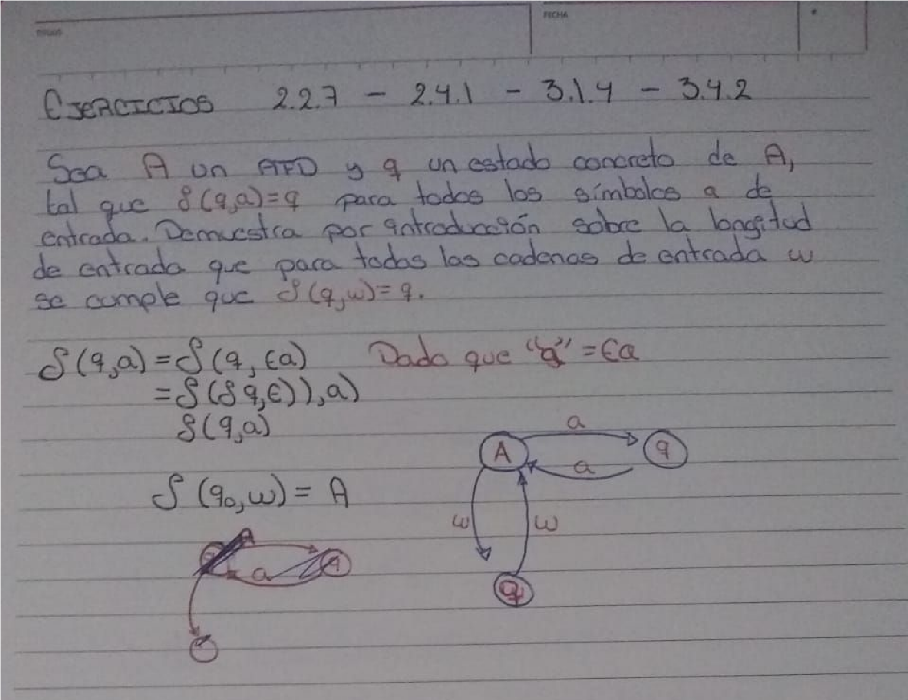 FECHA
EJERCICIOS 2.2.7 - 2.4.1 - 3.1.4 - 3.4.2
Sea A un AFD y q un estado concreto de A,
tal que δ(q,a)=q para todos los símbolos a de
entrada. Demuestra por introducción sobre la longitud
de entrada que para todas las cadenas de entrada w
se cumple que δ(q,w)=q.
δ(q,a)=δ(q,Ea) Dado que "a"=Ea
=δ(δq,E)),a)
δ(q,a)
a
A
q
a
δ(q₀,w)=A
w
w
q
A
a
q